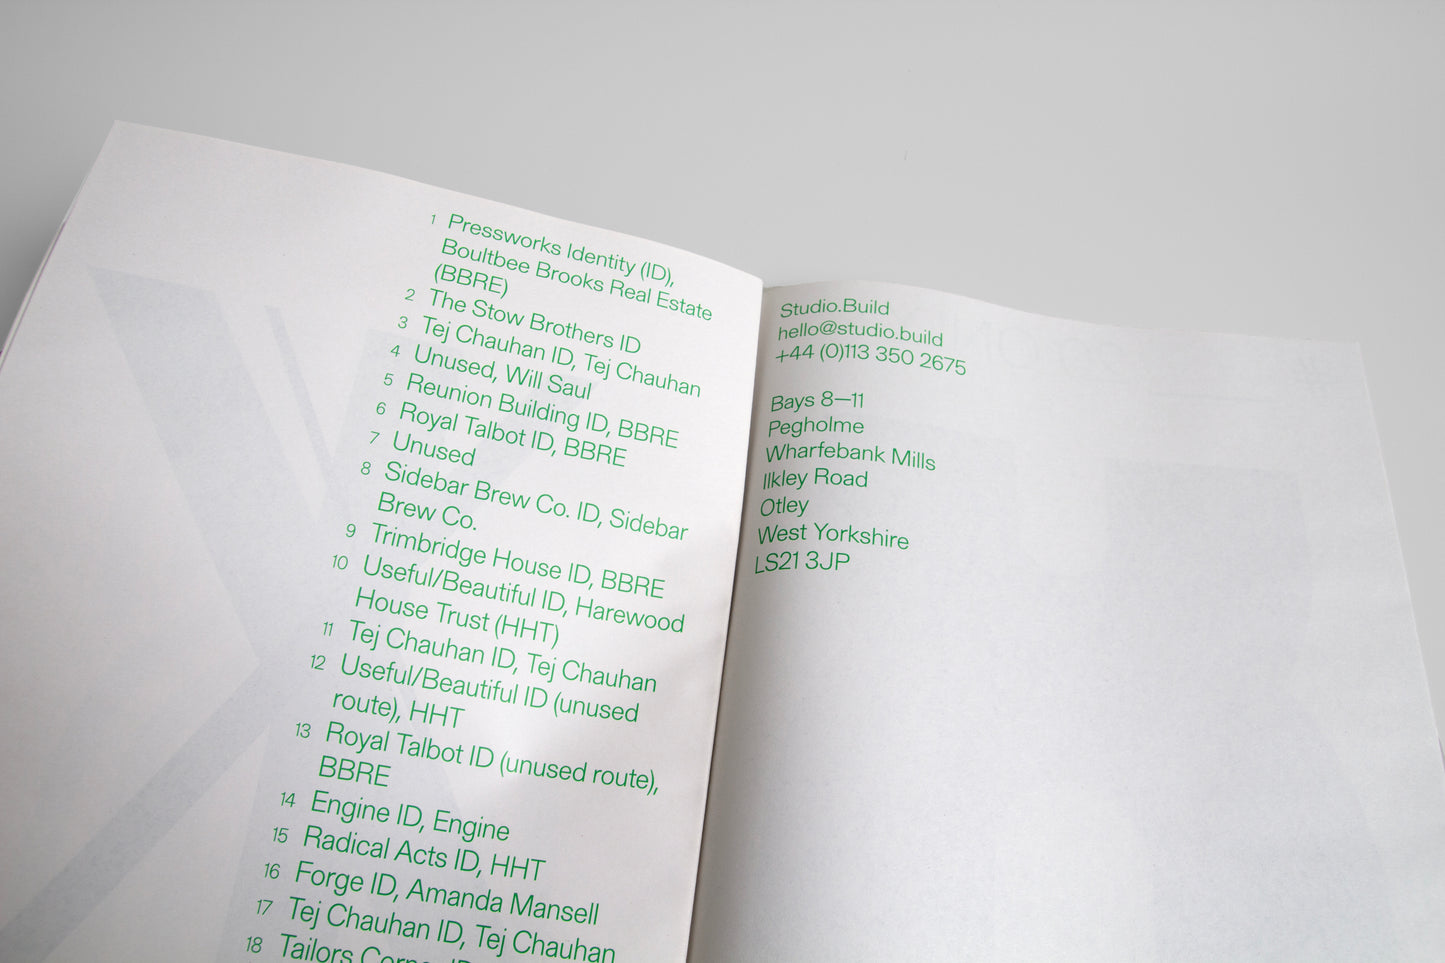 1 Pressworks Identity (ID),
Boultbee Brooks Real Estate
(BBRE)
2 The Stow Brothers ID
3 Tej Chauhan ID, Tej Chauhan
4 Unused, Will Saul
5 Reunion Building ID, BBRE
6 Royal Talbot ID, BBRE
7 Unused
8 Sidebar Brew Co. ID, Sidebar
Brew Co.
9 Trimbridge House ID, BBRE
10 Useful/Beautiful ID, Harewood
House Trust (HHT)
11 Tej Chauhan ID, Tej Chauhan
12 Useful/Beautiful ID (unused
route), HHT
13 Royal Talbot ID (unused route),
BBRE
14 Engine ID, Engine
15 Radical Acts ID, HHT
16 Forge ID, Amanda Mansell
17 Tej Chauhan ID, Tej Chauhan
18 Tailors
Studio.Build
hello@studio.build
+44 (0)113 350 2675
Bays 8—11
Pegholme
Wharfebank Mills
Ilkley Road
Otley
West Yorkshire
LS21 3JP